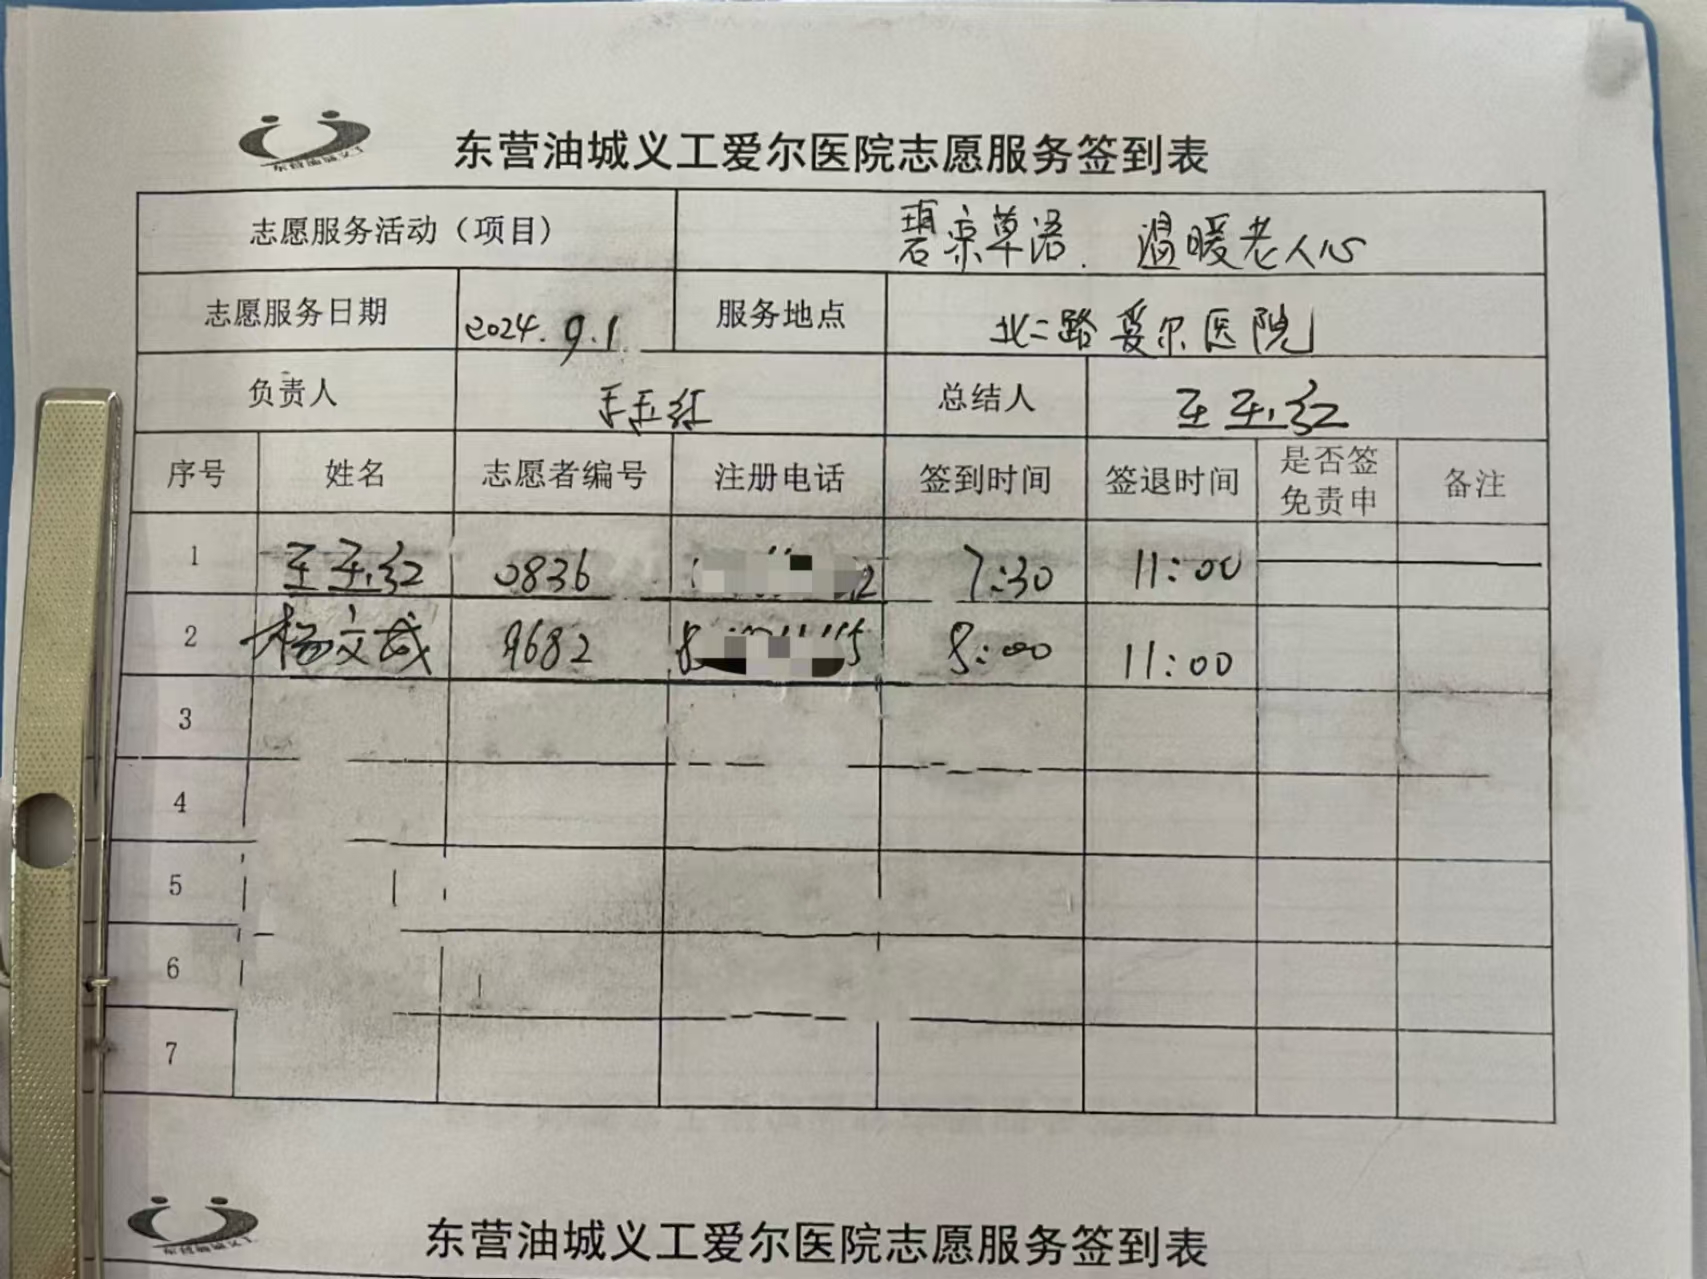 东营油城义工
东营油城义工爱尔医院志愿服务签到表
志愿服务活动（项目） 碧 草语. 温暖老人心
志愿服务日期 2024.9.1. 服务地点 北二路爱尔医院
负责人 王玉红 总结人 王玉红
序号 姓名 志愿者编号 注册电话 签到时间 签退时间 是否签免责申 备注
1 王玉红 0836 2 7:30 11:00
2 杨文成 9682 8 5 8:00 11:00
3
4
5
6
7
东营油城义工
东营油城义工爱尔医院志愿服务签到表